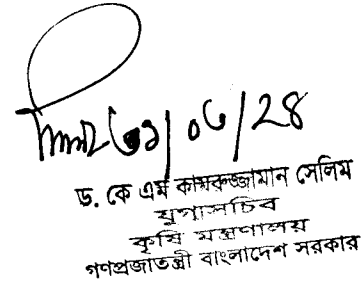 ৩১/০৩/২৪
ড. কে এম কামরুজ্জামান সেলিম
যুগ্মসচিব
কৃষি মন্ত্রণালয়
গণপ্রজাতন্ত্রী বাংলাদেশ সরকার